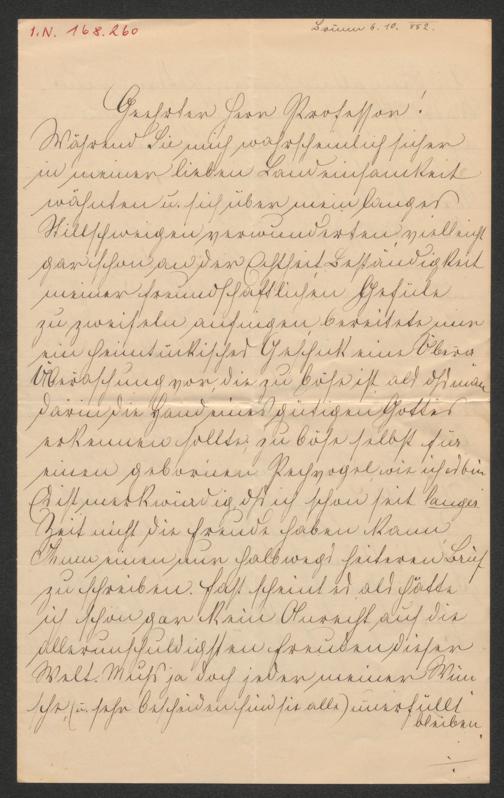 I.N. 168.260
Brünn 6. 10. 882.
Geehrter Herr Professor!
Während Sie mich wahrscheinlich sicher
in meiner lieben Landeinsamkeit
wähnten u. sich über mein langes
Stillschweigen verwunderten, vielleicht
gar schon an der Echtheit Beständigkeit
meiner freundschaftlichen Gefüle
zu zweifeln anfingen, bereitete mir
ein heimtükisches Geschik eine Überra
Überaschung vor, die zu böse ist als dß man
darin die Hand eines gütigen Gottes
erkennen sollte, zu böse selbst für
einen gebornen Pechvogel, wie ich es bin
Es ist merkwürdig dß ich schon seit langer
Zeit nicht die Freude haben kann
Ihnen einen nur halbwegs heiteren Brief
zu schreiben. Fast scheint es als hätte
ich schon gar kein Anrecht auf die
allerunschuldigsten Freuden dieser
Welt. Muß ja doch jeder meiner Wün
sche, (u. sehr bescheiden sind sie alle) unerfüllt
bleiben.